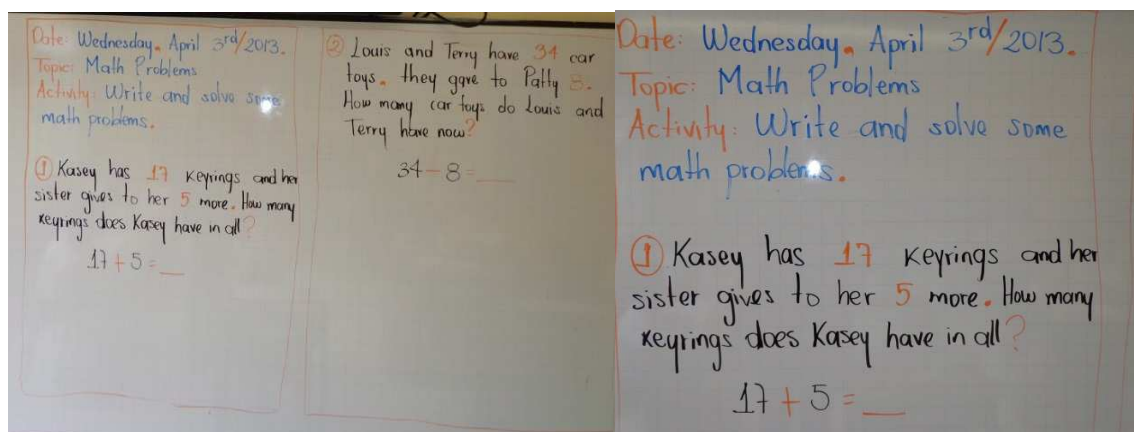 Date: Wednesday. April 3rd/2013.
Topic: Math Problems
Activity: Write and solve some
math problems.
① Kasey has 17 keyrings and her
sister gives to her 5 more. How many
keyrings does Kasey have in all?
17 + 5 = __
② Louis and Terry have 34 car
toys. they gave to Patty 8.
How many car toys do Louis and
Terry have now?
34 - 8 = __
Date: Wednesday. April 3rd/2013.
Topic: Math Problems
Activity: Write and solve some
math problems.
① Kasey has 17 keyrings and her
sister gives to her 5 more. How many
keyrings does Kasey have in all?
17 + 5 = __